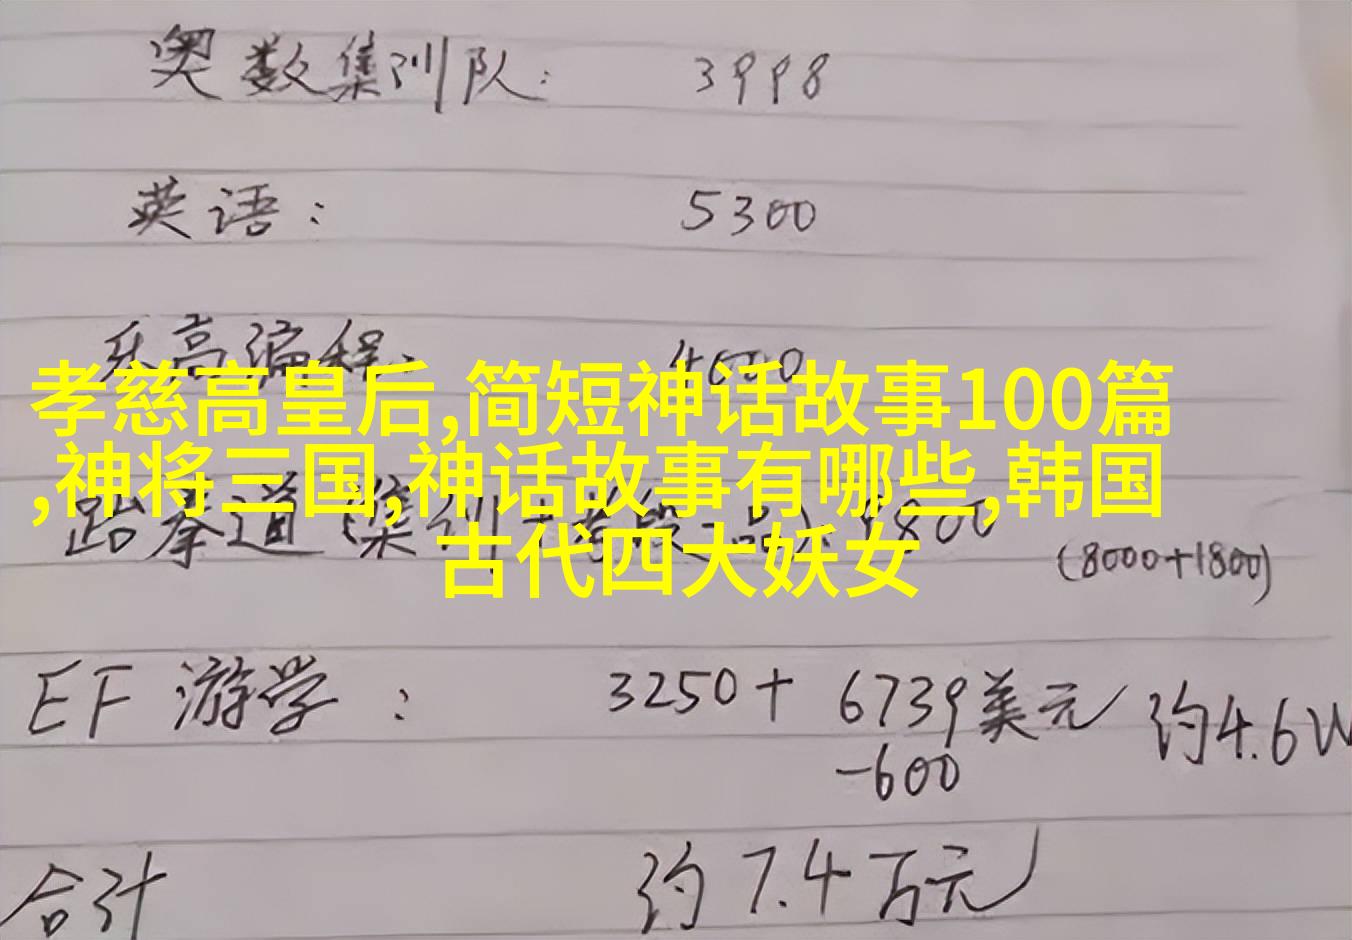 奥数集训队： 3998
英语： 5300
乐高编程： 4000
孝慈高皇后,简短神话故事100篇
,神将三国,神话故事有哪些,韩国
古代四大妖女
跆拳道(集训+考段-品) 9800
(8000+1800)
EF 游学： 3250+ 6739美元 约4.6W
-600
合计 约7.4万元